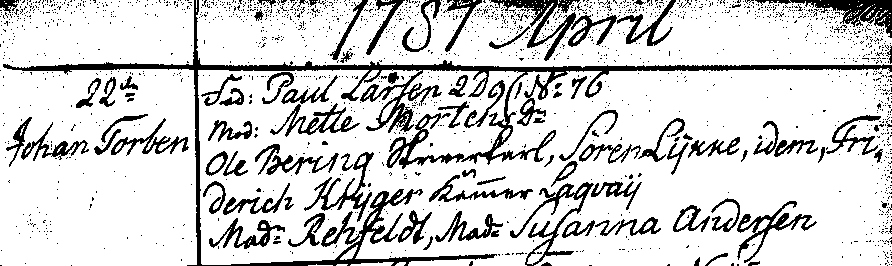 1787 April
22de
Johan Torben
Fad: Paul Larsen 2 D 9 C N: 76
Mod: Mette Mortens D:
Ole Bering Skriverkarl, Sören Lÿkke, idem, Fri,
derich Krÿger Kammer Laqvaÿ
Mad: Rehfeldt, Mad: Susanna Andersen